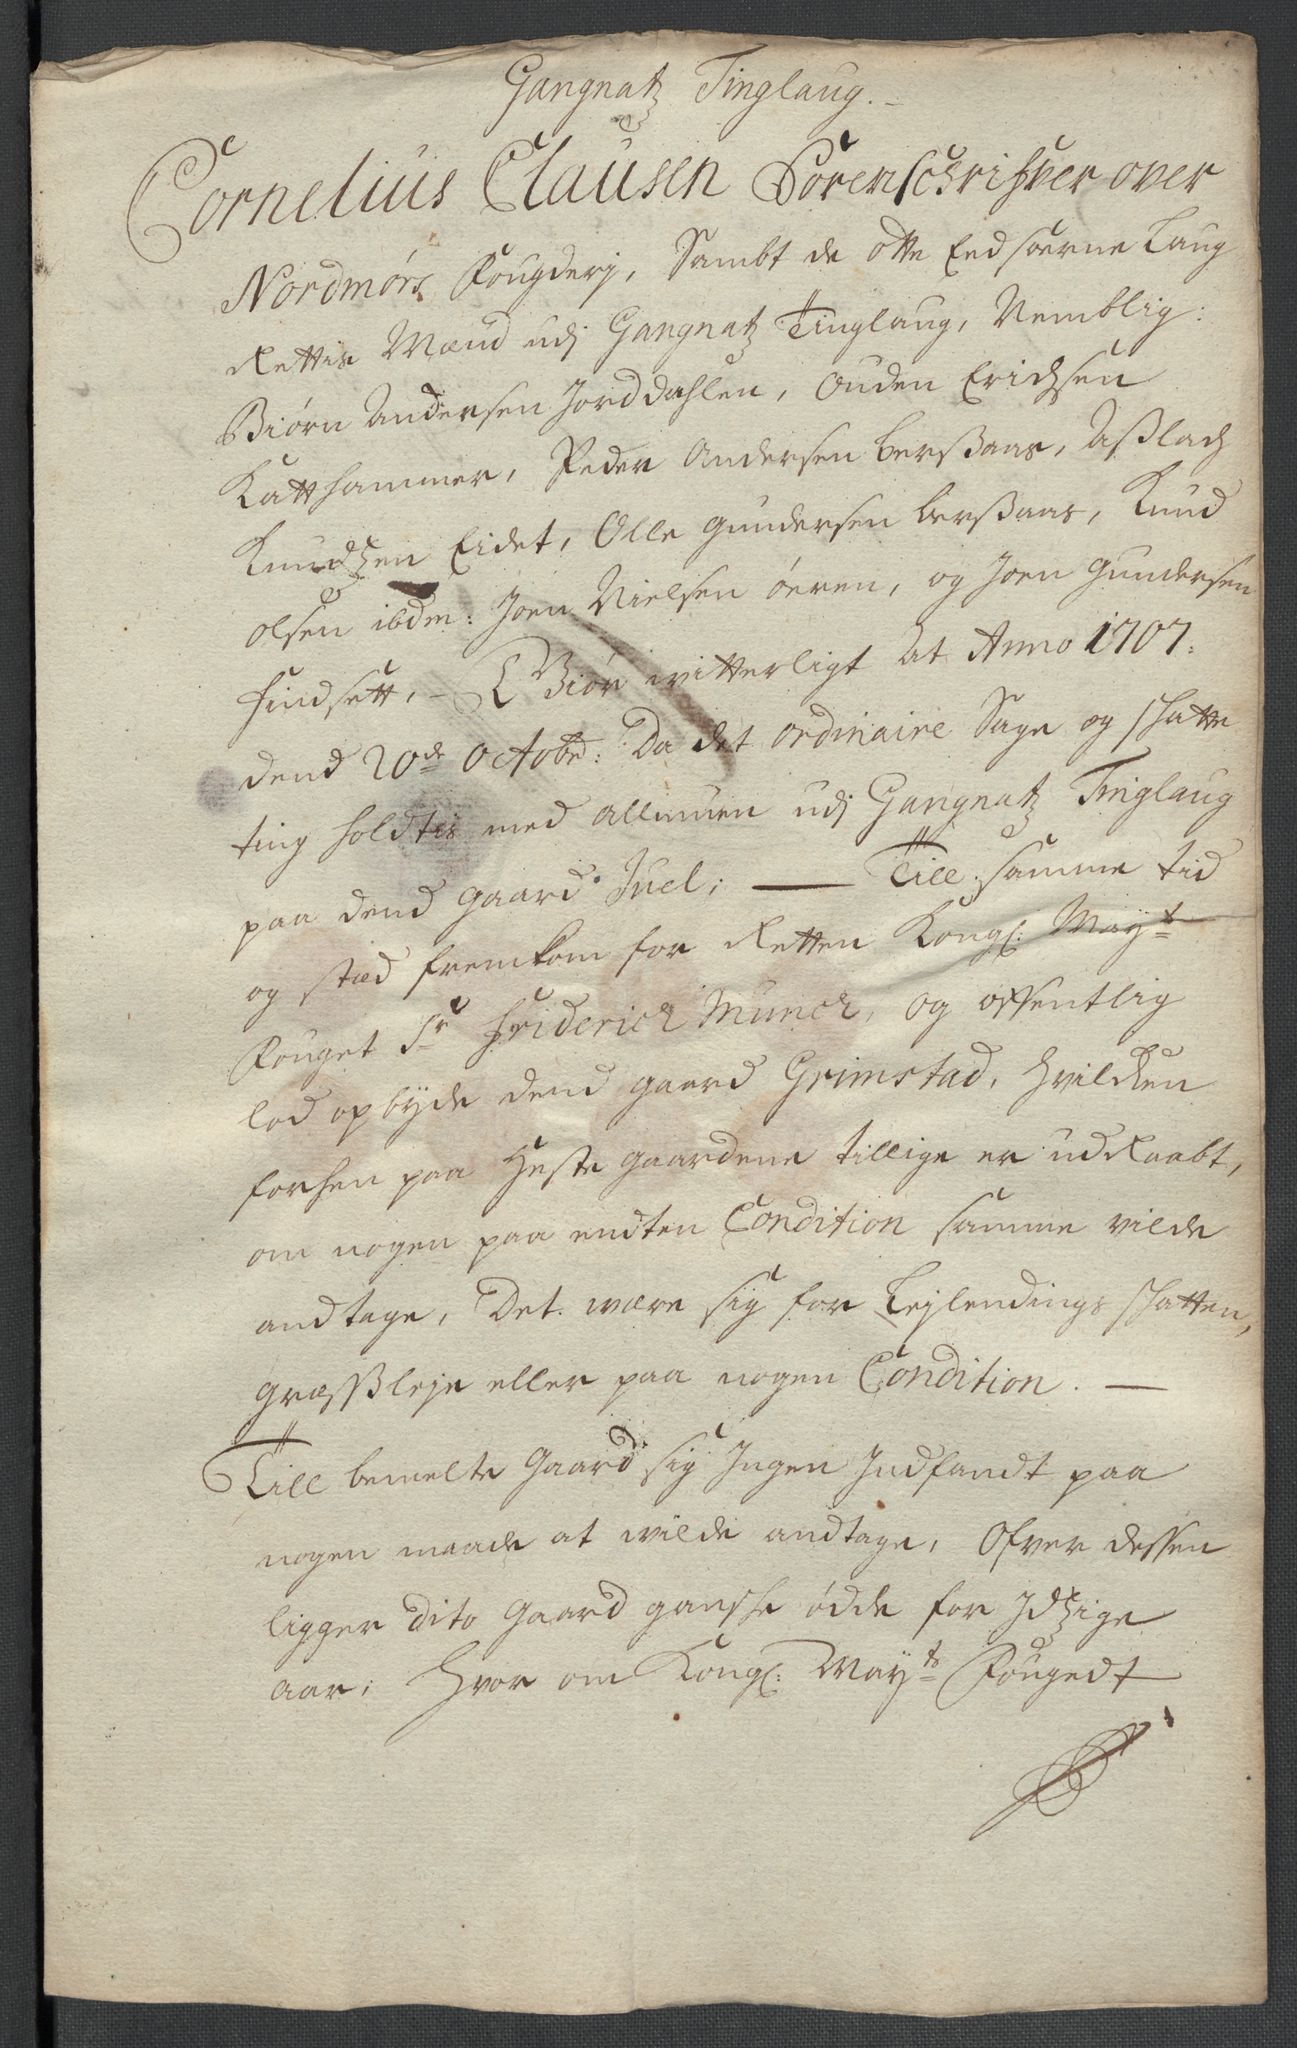 Gangnatz Tinglaug.
Cornelius Clausen Sorenschrifver over
Nordmørs Fougderj, Sambt de otte Eedsoerne Laug
Rettis Mænd udj Gangnatz Tinglaug, Nemblig:
Biørn Andersen Jorddahlen, Ouden Erichsen
Katthammer, Peder Andersen Berßaas, Aßlach
Knudtzen Eidet, Olle Gundersen Berßaas, Knud
olsen ibdm: Joen Nielsen øeren, og Joen Gundersen
Findsett, - Giør witterligt At Anno 1707:
dend 20de Octobr: Da det ordinaire Sage og schatte
ting holdtis med allmuen udj Gangnatz Tinglaug
paa dend gaard Juel; — Till samme tid
og stæd fremkom for Retten Kongl: Mayts
Fouget Sr Friderich Munch, og offentlig
lod opbyde dend gaard Grimstad, hvilcken
forhen paa Heste gaardene tillige er udRaabt,
om nogen paa endten Condition samme vilde
andtage, Det være sig for Lejlendings schatten,
græssßleje eller paa nogen Condition. —
Till bemelte Gaard sig Ingen Indfandt paa
nogen maade at wilde andtage, Ofver dessen
ligger dito Gaard gansche ødde for Jdtzige
aar; Hvor om Kongl: Mayts Fougedt